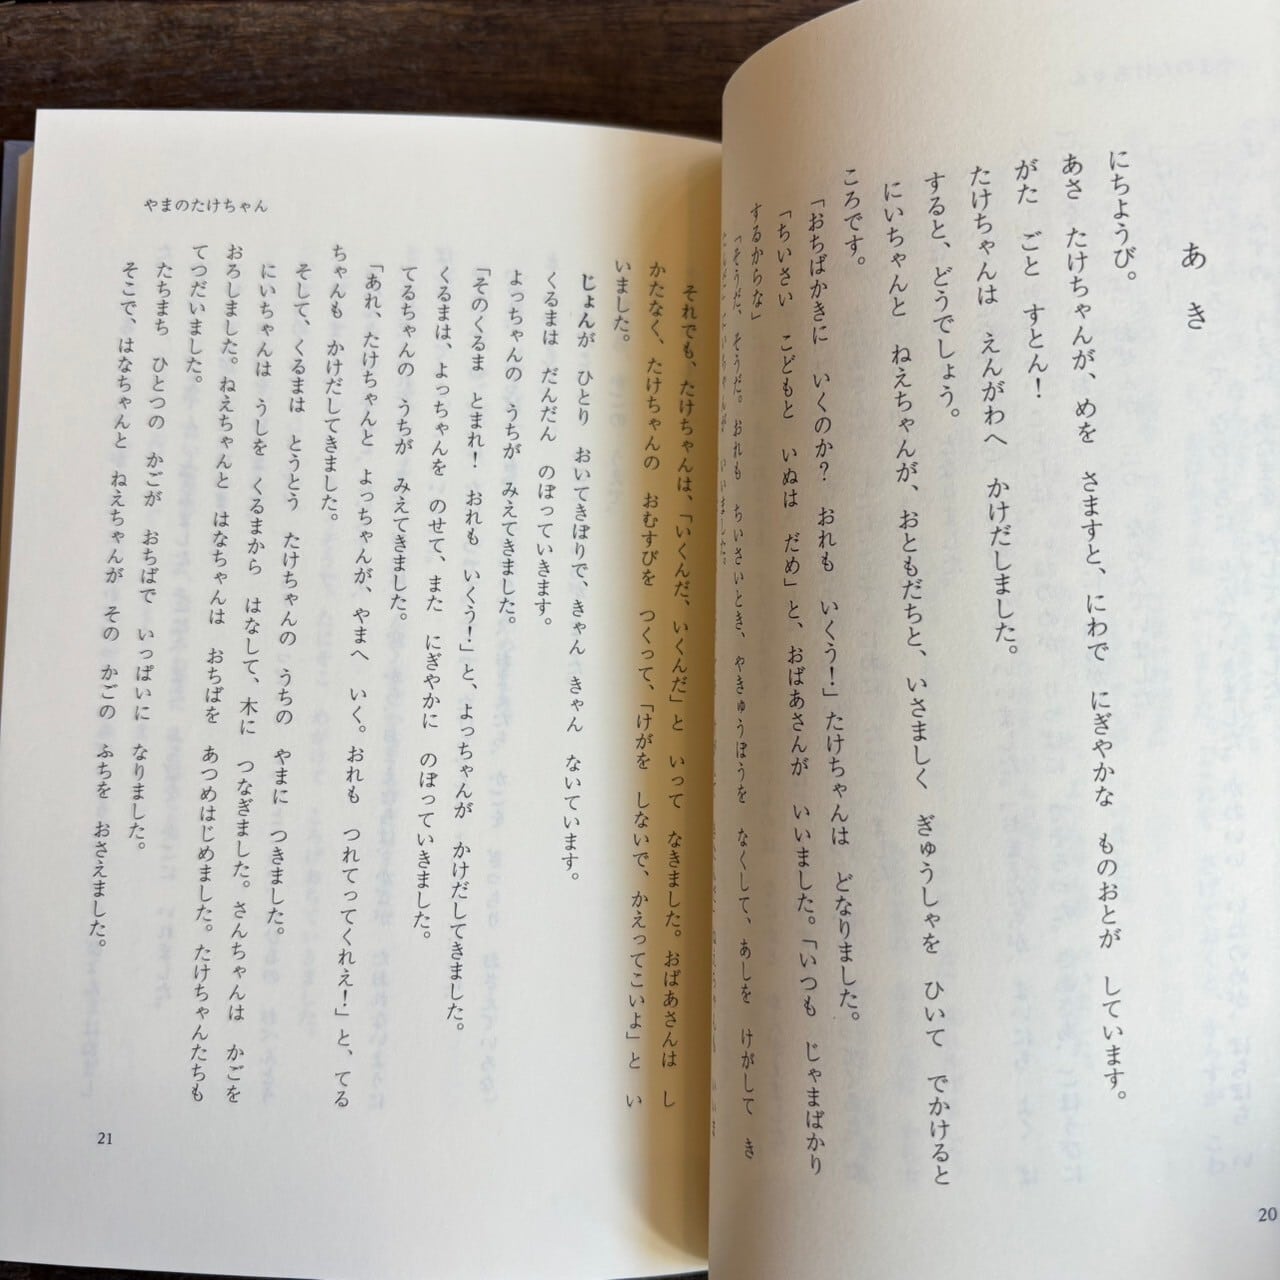 あき
にちようび。
あさ たけちゃんが、めを さますと、にわで にぎやかな ものおとが しています。
がた ごと すとん！
たけちゃんは えんがわへ かけだしました。
すると、どうでしょう。
にいちゃんと ねえちゃんが、おともだちと、いさましく ぎゅうしゃを ひいて でかけると
ころです。
「おちばかきに いくのか？ おれも いくう！」たけちゃんは どなりました。
「ちいさい こどもと いぬは だめ」と、おばあさんが いいました。「いつも じゃまばかり
するからな」
「そうだ、そうだ。おれも ちいさいとき、やきゅうぼうを なくして、あしを けがして き
20
やまのたけちゃん
それでも、たけちゃんは、「いくんだ、いくんだ」と いって なきました。おばあさんは し
かたなく、たけちゃんの おむすびを つくって、「けがを しないで、かえってこいよ」と い
いました。
じょんが ひとり おいてきぼりで、きゃん きゃん ないています。
くるまは だんだん のぼっていきます。
よっちゃんの うちが みえてきました。
「そのくるま とまれ！ おれも いくう！」と、よっちゃんが かけだしてきました。
くるまは、よっちゃんを のせて、また にぎやかに のぼっていきました。
てるちゃんの うちが みえてきました。
「あれ、たけちゃんと よっちゃんが、やまへ いく。おれも つれてってくれえ！」と、てる
ちゃんも かけだしてきました。
そして、くるまは とうとう たけちゃんの うちの やまに つきました。
にいちゃんは うしを くるまから はなして、木に つなぎました。さんちゃんは かごを
おろしました。ねえちゃんと はなちゃんは おちばを あつめはじめました。たけちゃんたちも
てつだいました。
たちまち ひとつの かごが おちばで いっぱいに なりました。
そこで、はなちゃんと ねえちゃんが その かごの ふちを おさえました。
21